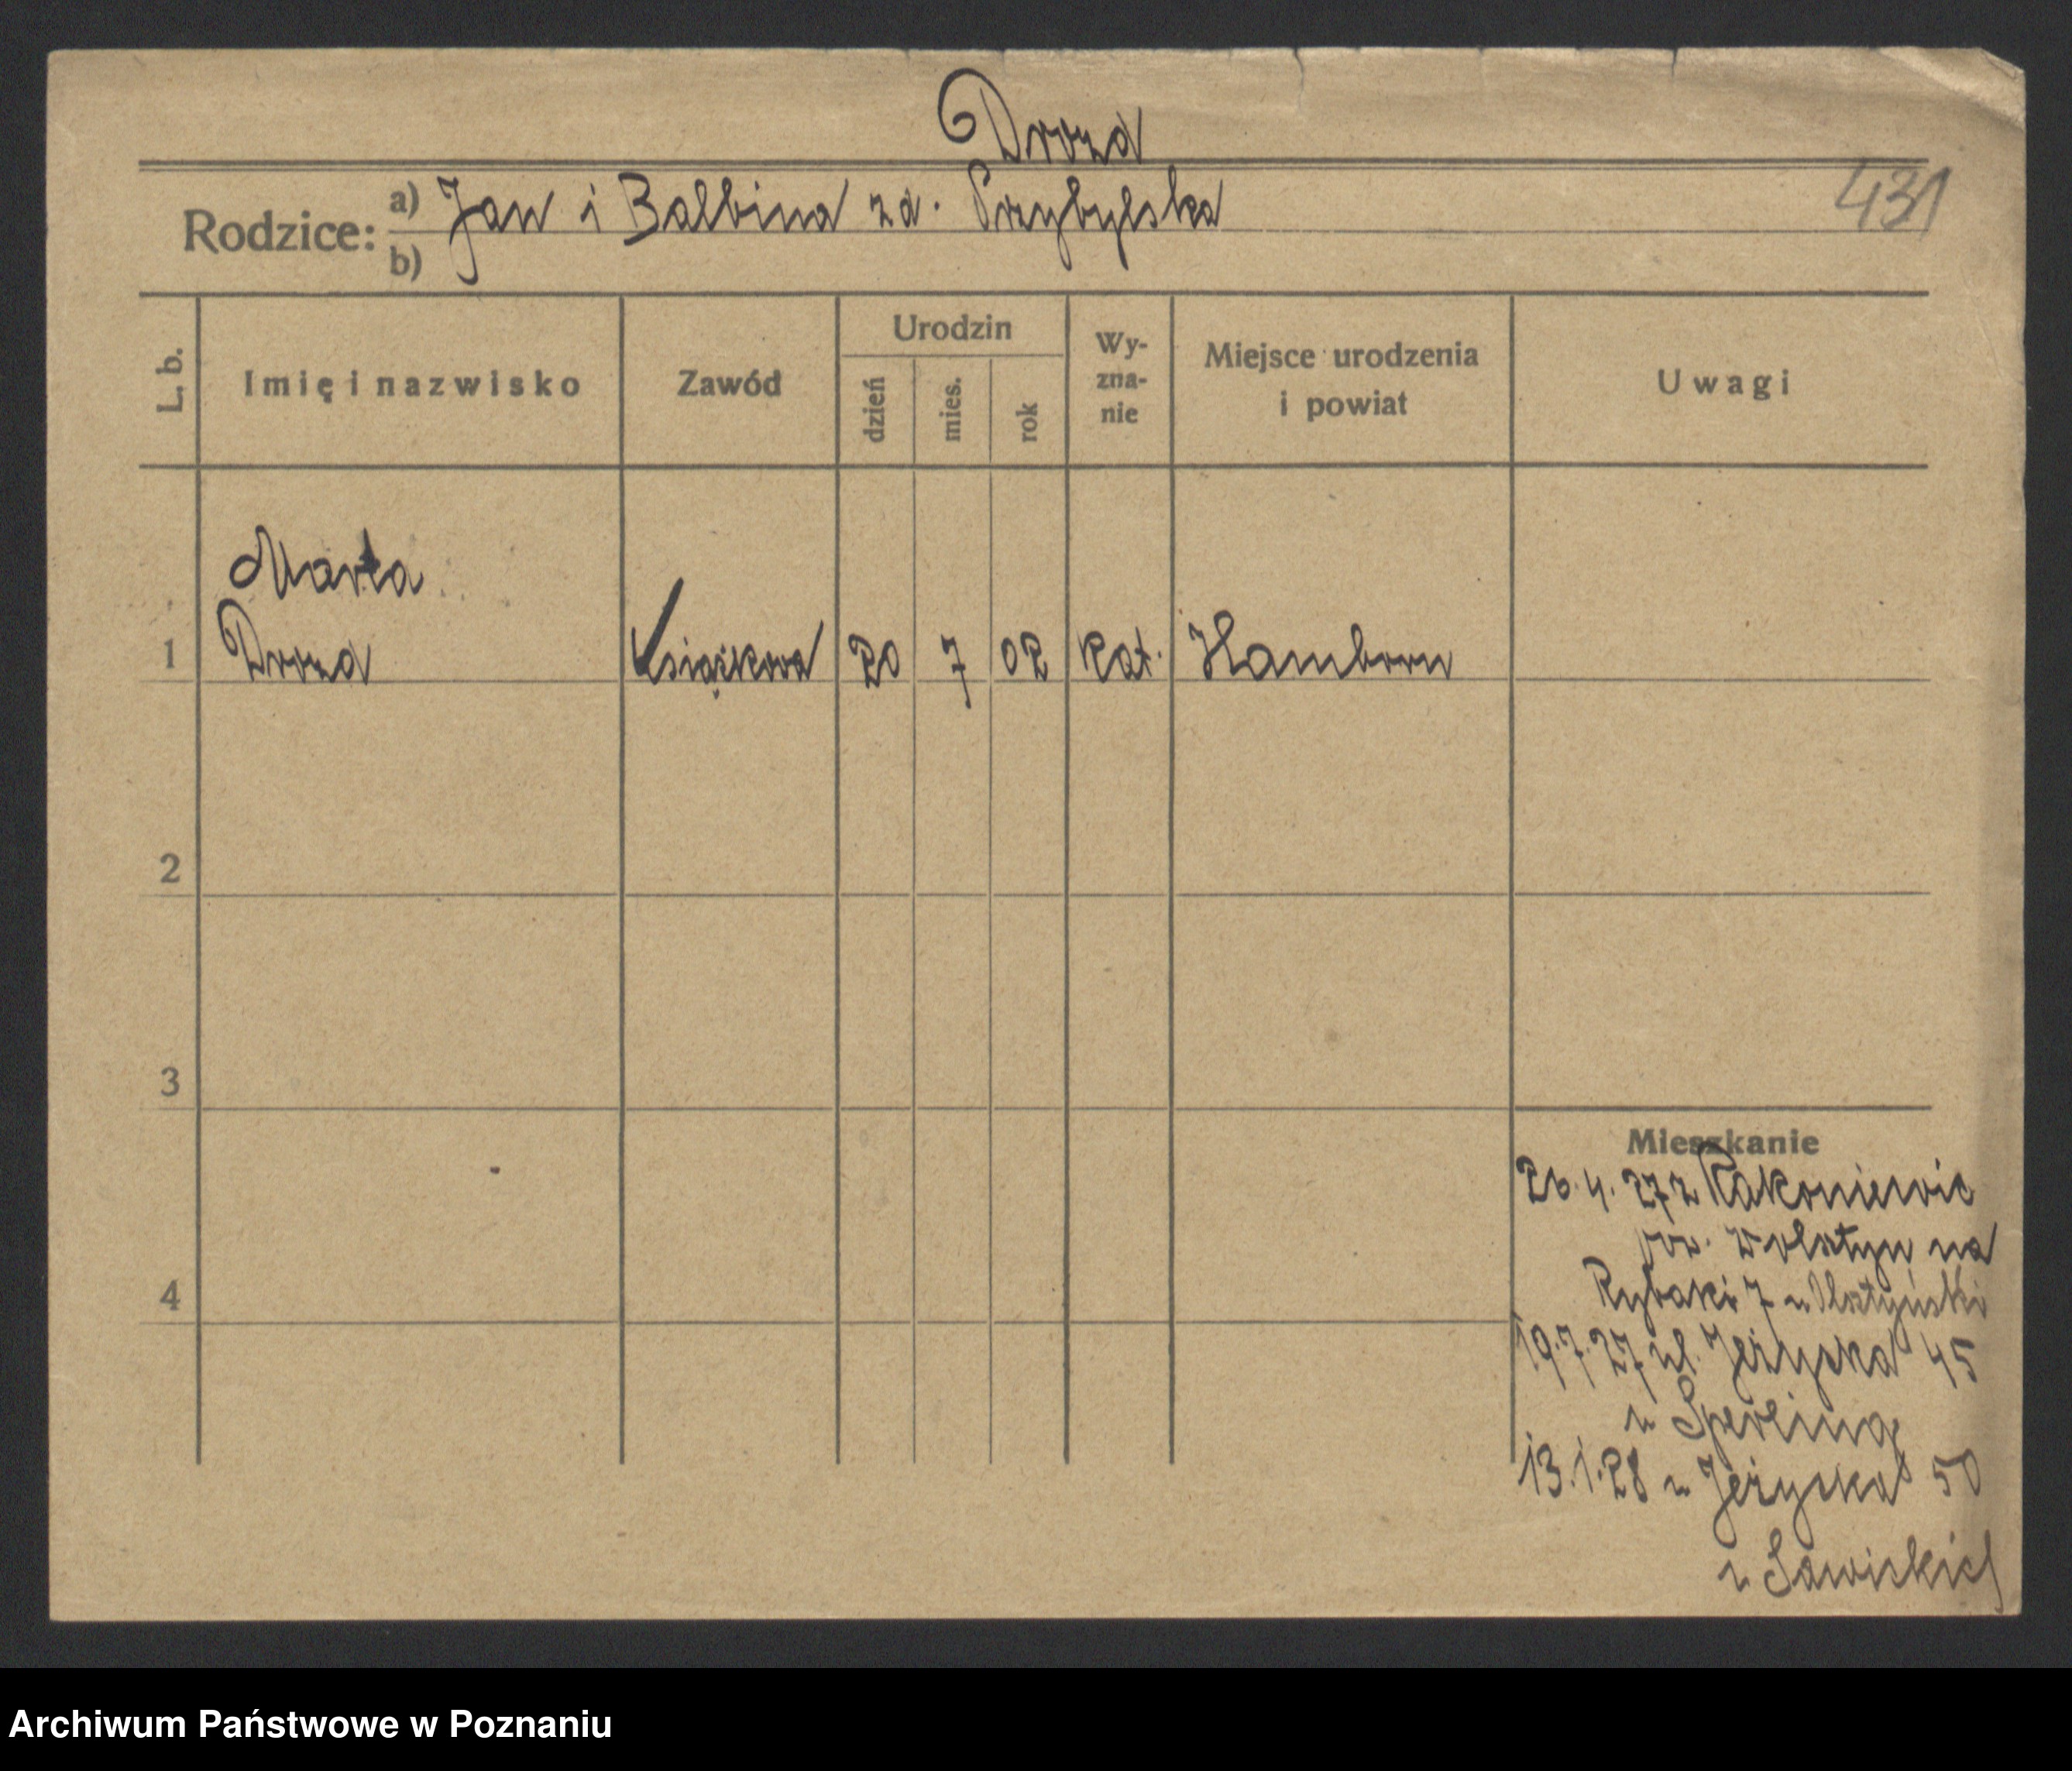 Drozd
431
Rodzice: a) Jan i Balbina zd. Przybylska
b)
L. b.
Imię i nazwisko
Zawód
Urodzin
dzień
mies.
rok
Wy-
zna-
nie
Miejsce urodzenia
i powiat
Uwagi
Marta
1 Drozd Książkowa 20 7 02 kat. Hamborn
2
3
4
Mieszkanie
26.4.27 z Rakoniewic
pow. Wolsztyn na
Rybaki 7 u
19.7.27 ul. Jeżycka 45
u Sperling
13.1.28 u Jeżycka 50
u Sawickich
Archiwum Państwowe w Poznaniu